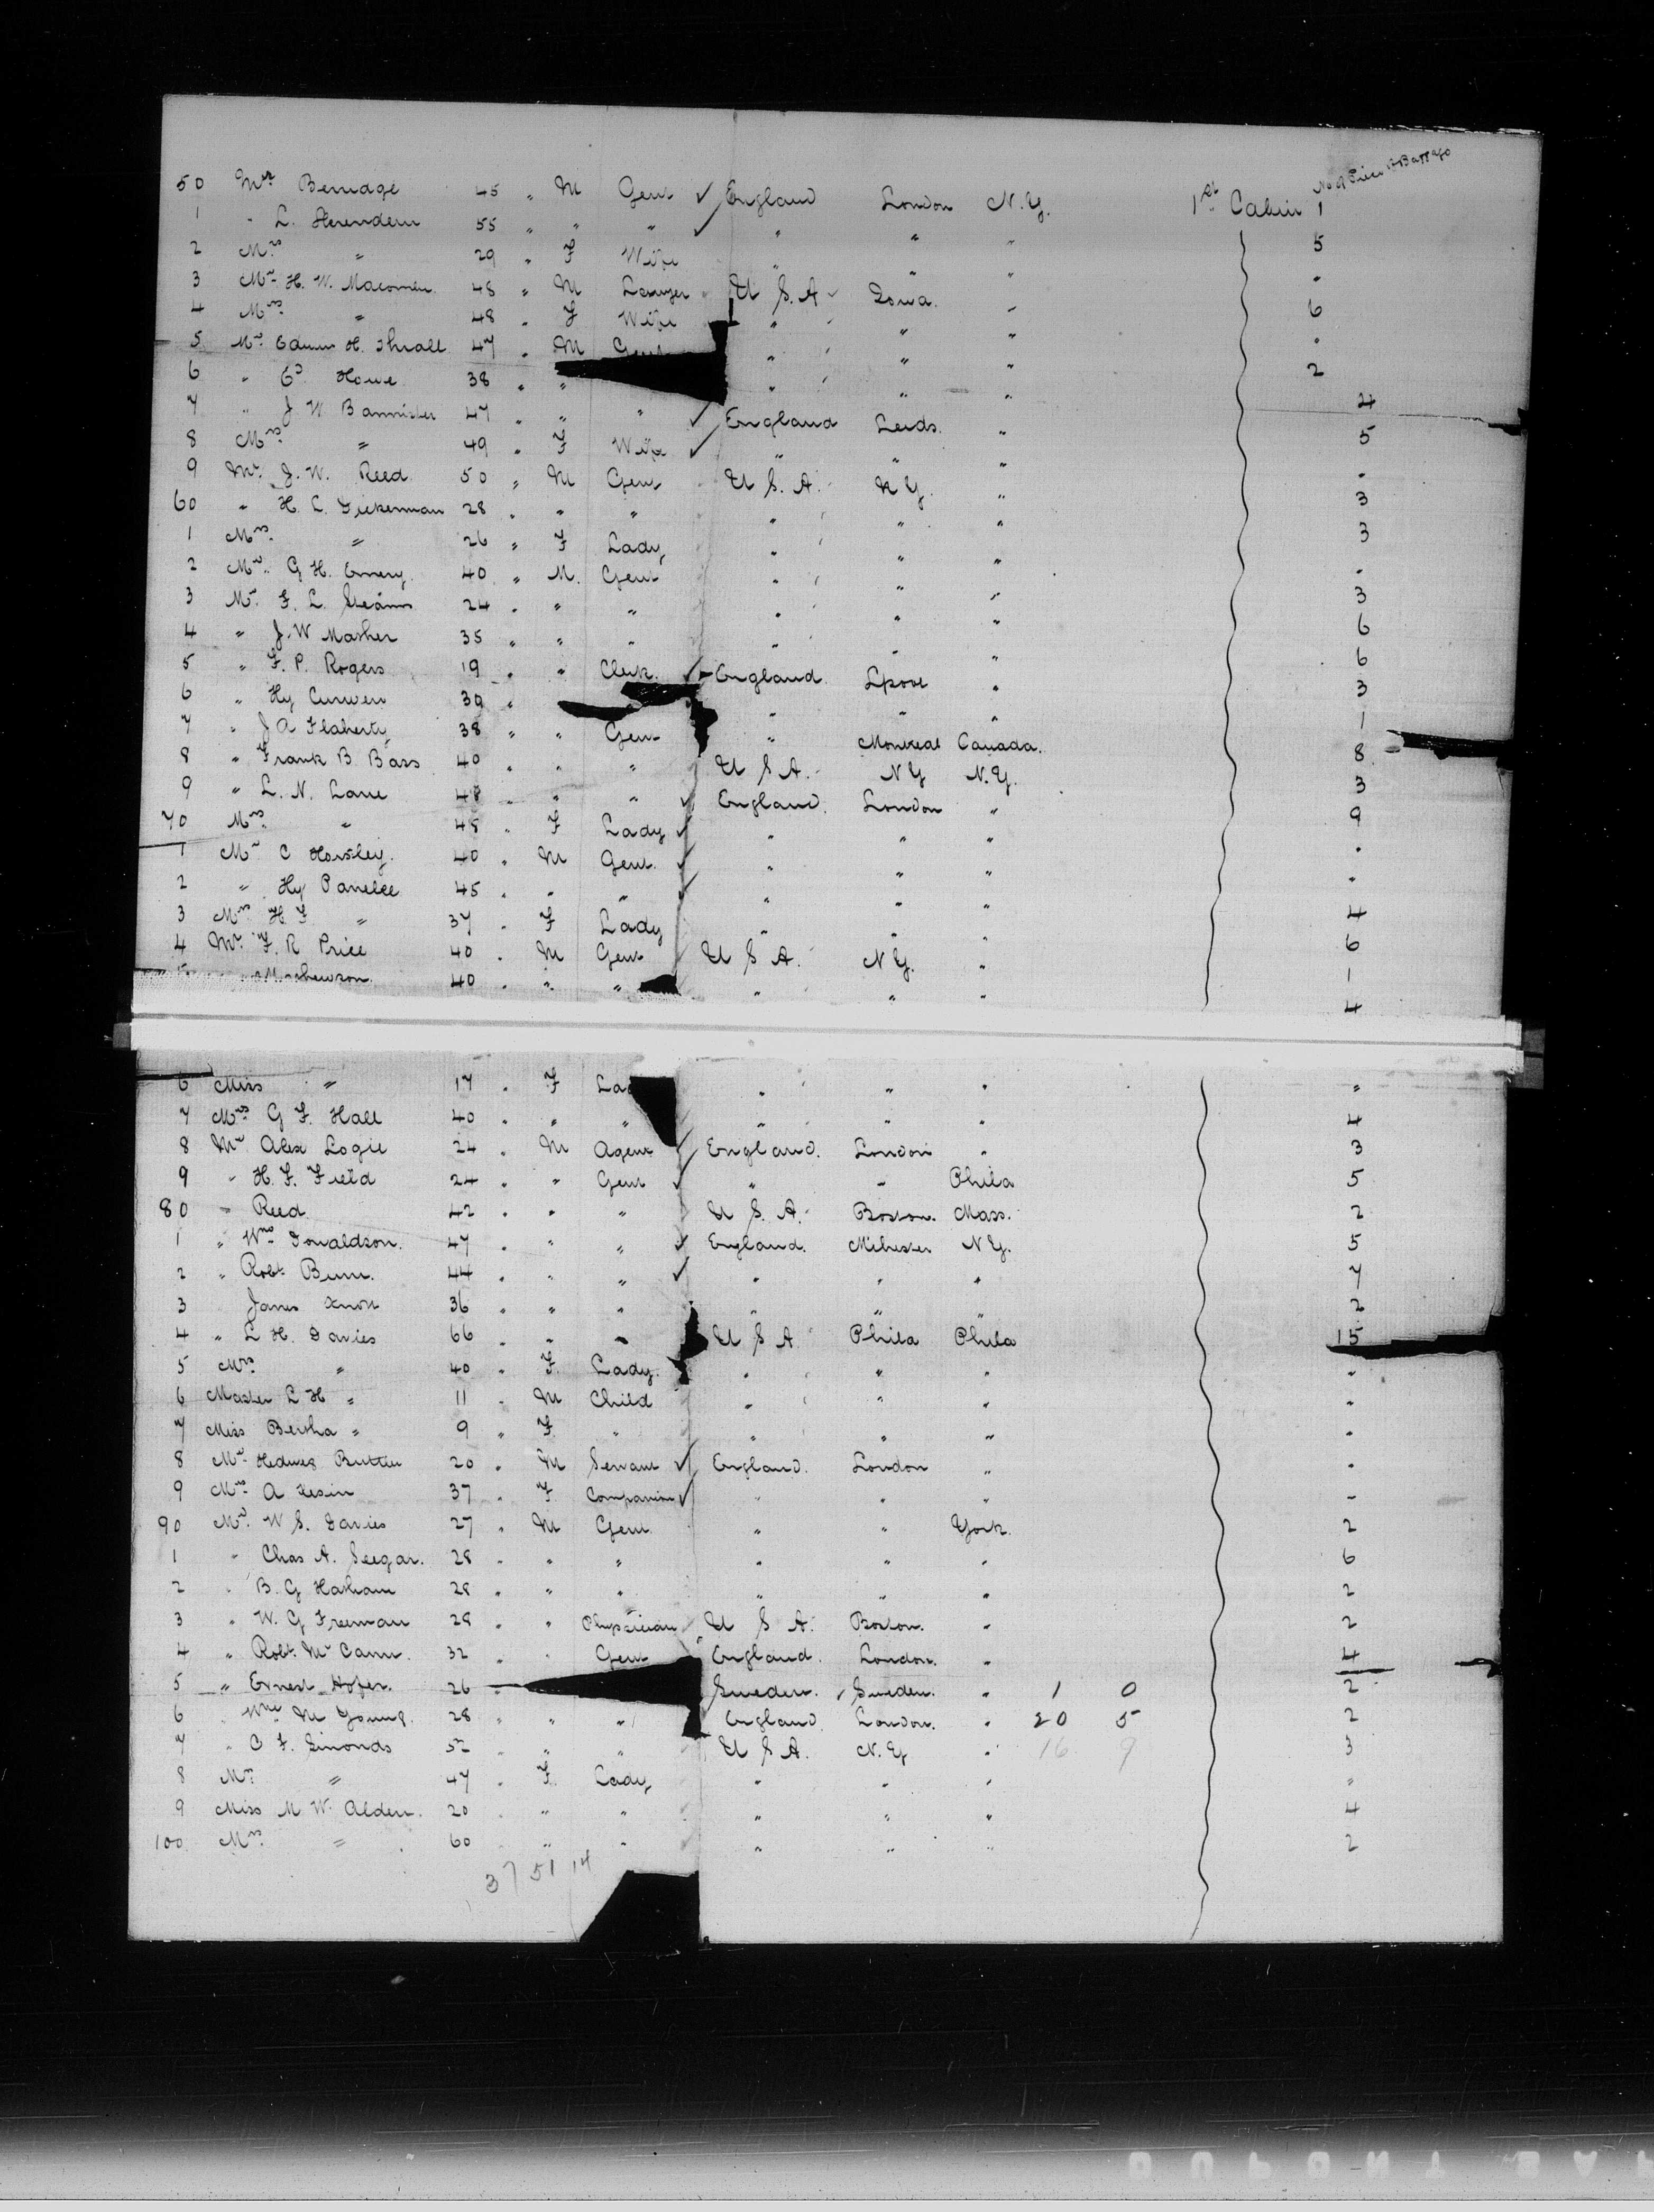 No of Pieces Baggage
50 Mr Berridge 45 " M Gent ✓ England London N.Y. 1st Cabin 1
1 " L. Herendeen 55 " " " ✓ " " " 5
2 Mrs " 29 " F Wife " " " "
3 Mr H. W. Macomber 48 " M Lawyer U S.A. Iowa. " 6
4 Mrs " 48 " F Wife " " " "
5 Mr Edwin H. Thrall 47 " M Gent " " " 2
6 " Howe 38 " " " " " 4
7 " J W Bannister 47 " " " ✓ England Leeds. " 5
8 Mrs " 49 " F Wife ✓ " " " "
9 Mr. J. W. Reed. 50 " M Gent U S. A. N Y. " 3
60 " H. L. 28 " " " " " " 3
1 Mrs " 26 " F Lady " " " "
2 Mr. G H. Emery. 40 " M. Gent " " " 3
3 Mr. F. L. Stearns 24 " " " " " " 6
4 " J. W Mosher 35 " " " " " " 6
5 " F. P. Rogers 19 " " Clerk. ✓ England. Lpool " 3
6 " Hy Curwen 39 " " " " 1
7 " J A Flaherty 38 " " Gent " Montreal Canada. 8
8 " Frank B Bass 40 " " " U S A. N Y N.Y. 3
9 " L. N. Lane 48 " " " ✓ England. London " 9
70 Mrs " 48 " F Lady ✓ " " " "
1 Mr C Horsley. 40 " M Gent. ✓ " " " "
2 " Hy 45 " " " ✓ " " " 4
3 Mrs H F " 37 " F Lady " " " 6
4 Mr. F. R Price 40 " M Gent U S A. N Y. " 1
40 " " " " " " 4
6 Miss " 17 " F " " " "
7 Mrs G F. Hall 40 " " " " " " 4
8 Mr Alex Logie 24 " M Agent ✓ England. London " 3
9 " H. F. Field 24 " " Gent ✓ " " Phila 5
80 " Reed. 42 " " " U S. A. Boston. Mass. 2
1 " Wm Donaldson. 47 " " " ✓ England. M'chester N Y. 5
2 " Robt 44 " " " ✓ " " " 7
3 James Knott 36 " " " " " " 2
4 " L H. Davies 66 " " " U S A Phila Phila 15
5 Mrs " 40 " F. Lady. " " " "
6 Master L H " 11 " M Child " " " "
7 Miss Bertha " 9 " F " " " " "
8 Mr. 20 " M Servant ✓ England. London " "
9 Mrs A 37 " F Companion ✓ " " " "
90 Mr. W S. Davies 27 " M Gent. " " York. 2
1 " Chas A. Seegar. 28 " " " " " " 6
2 " B. G 28 " " " " " " 2
3 " W. G Freeman 28 " " Physician U S A. Boston. " 2
4 " Robt. Mc Cann. 32 " " Gent England. London. " 4
5 " Ernest Hofer. 26 " Sweden. Sweden. " 1 0 2
6 Wm M Young. 28 " " " England. London. " 20 5 2
7 " C F. Simonds 52 " " " U S A. N.Y " 16 9 3
8 Mrs " 47 " F. Lady " " " "
9 Miss M W. Alden. 20 " " " " " " 4
100 Mrs " 60 " " " " " 2
37 51 14